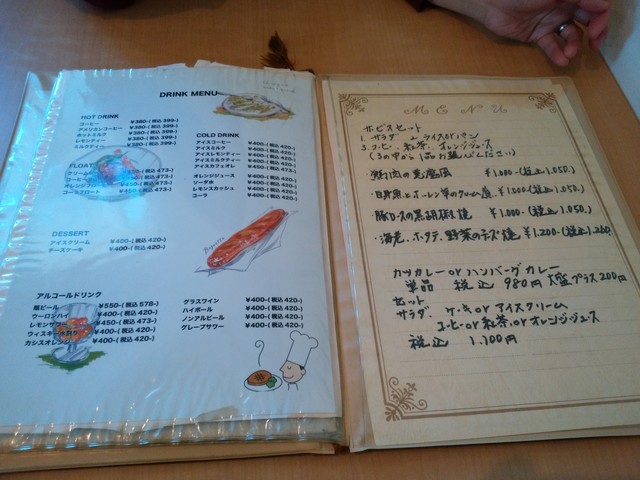 DRINK MENU
HOT DRINK
コーヒー ¥380-(税込 399-)
アメリカンコーヒー ¥380-(税込 399-)
ホットミルク ¥380-(税込 399-)
レモンティー ¥380-(税込 399-)
ミルクティー ¥380-(税込 399-)
FLOAT
COLD DRINK
アイスコーヒー ¥400-(税込 420-)
アイスミルク ¥400-(税込 420-)
アイスレモンティー ¥400-(税込 420-)
アイスミルクティー ¥400-(税込 420-)
アイスカフェオレ ¥400-(税込 420-)
オレンジジュース ¥400-(税込 420-)
ソーダ水 ¥400-(税込 420-)
レモンスカッシュ ¥400-(税込 420-)
コーラ ¥400-(税込 420-)
DESSERT
アイスクリーム ¥400-(税込 420-)
チーズケーキ ¥400-(税込 420-)
アルコールドリンク
瓶ビール ¥550-(税込 578-)
ウーロンハイ ¥400-(税込 420-)
レモンサワー ¥450-(税込 473-)
ウィスキー ¥400-(税込 420-)
カシスオレンジ ¥400-(税込 420-)
グラスワイン ¥400-(税込 420-)
ハイボール ¥400-(税込 420-)
ノンアルビール ¥400-(税込 420-)
グレープサワー ¥400-(税込 420-)
MENU
サービスセット
1. サラダ 2. ライスorパン
3. コーヒー、紅茶、オレンジジュース
(3の中から1品お選びください)
・鶏肉の悪魔風 ¥1.000-(税込1.050.)
¥1.000-(税込1.050.)
・豚ロースの黒胡椒焼 ¥1.000-(税込1.050.)
・海老、ホタテ、野菜のチーズ焼 ¥1.200-(税込1.260
カツカレー or ハンバーグカレー
単品 税込 980円 大盛プラス200円
セット
サラダ、ケーキ or アイスクリーム
コーヒー or 紅茶 or オレンジジュース
税込 1.100円